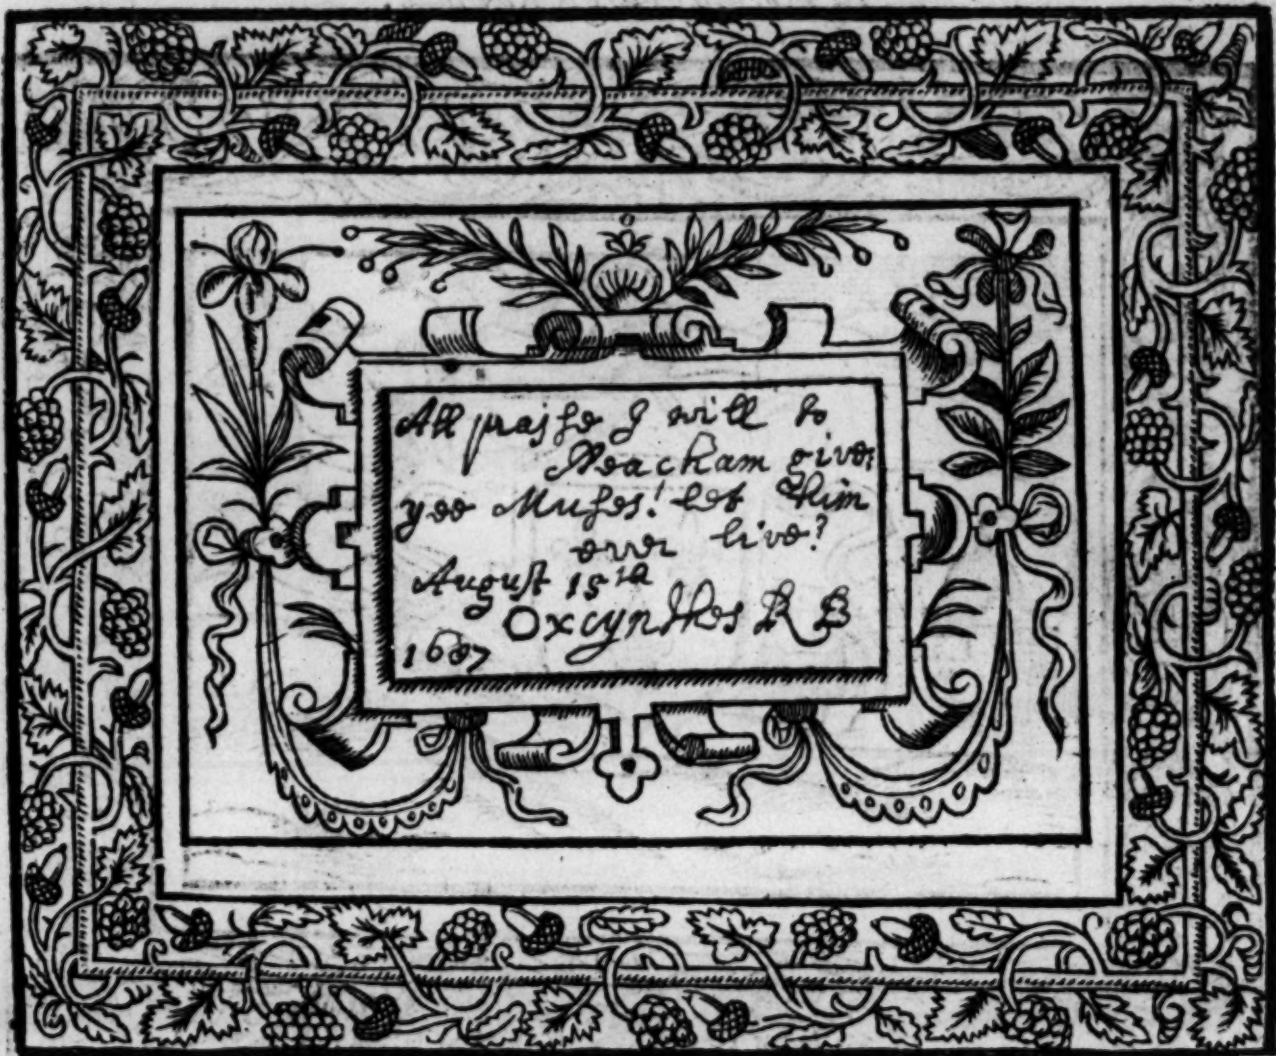 All praise I will to
Peacham give
yee Muses! let him
ever live?
August 15th
Oxcynthos R B
1687